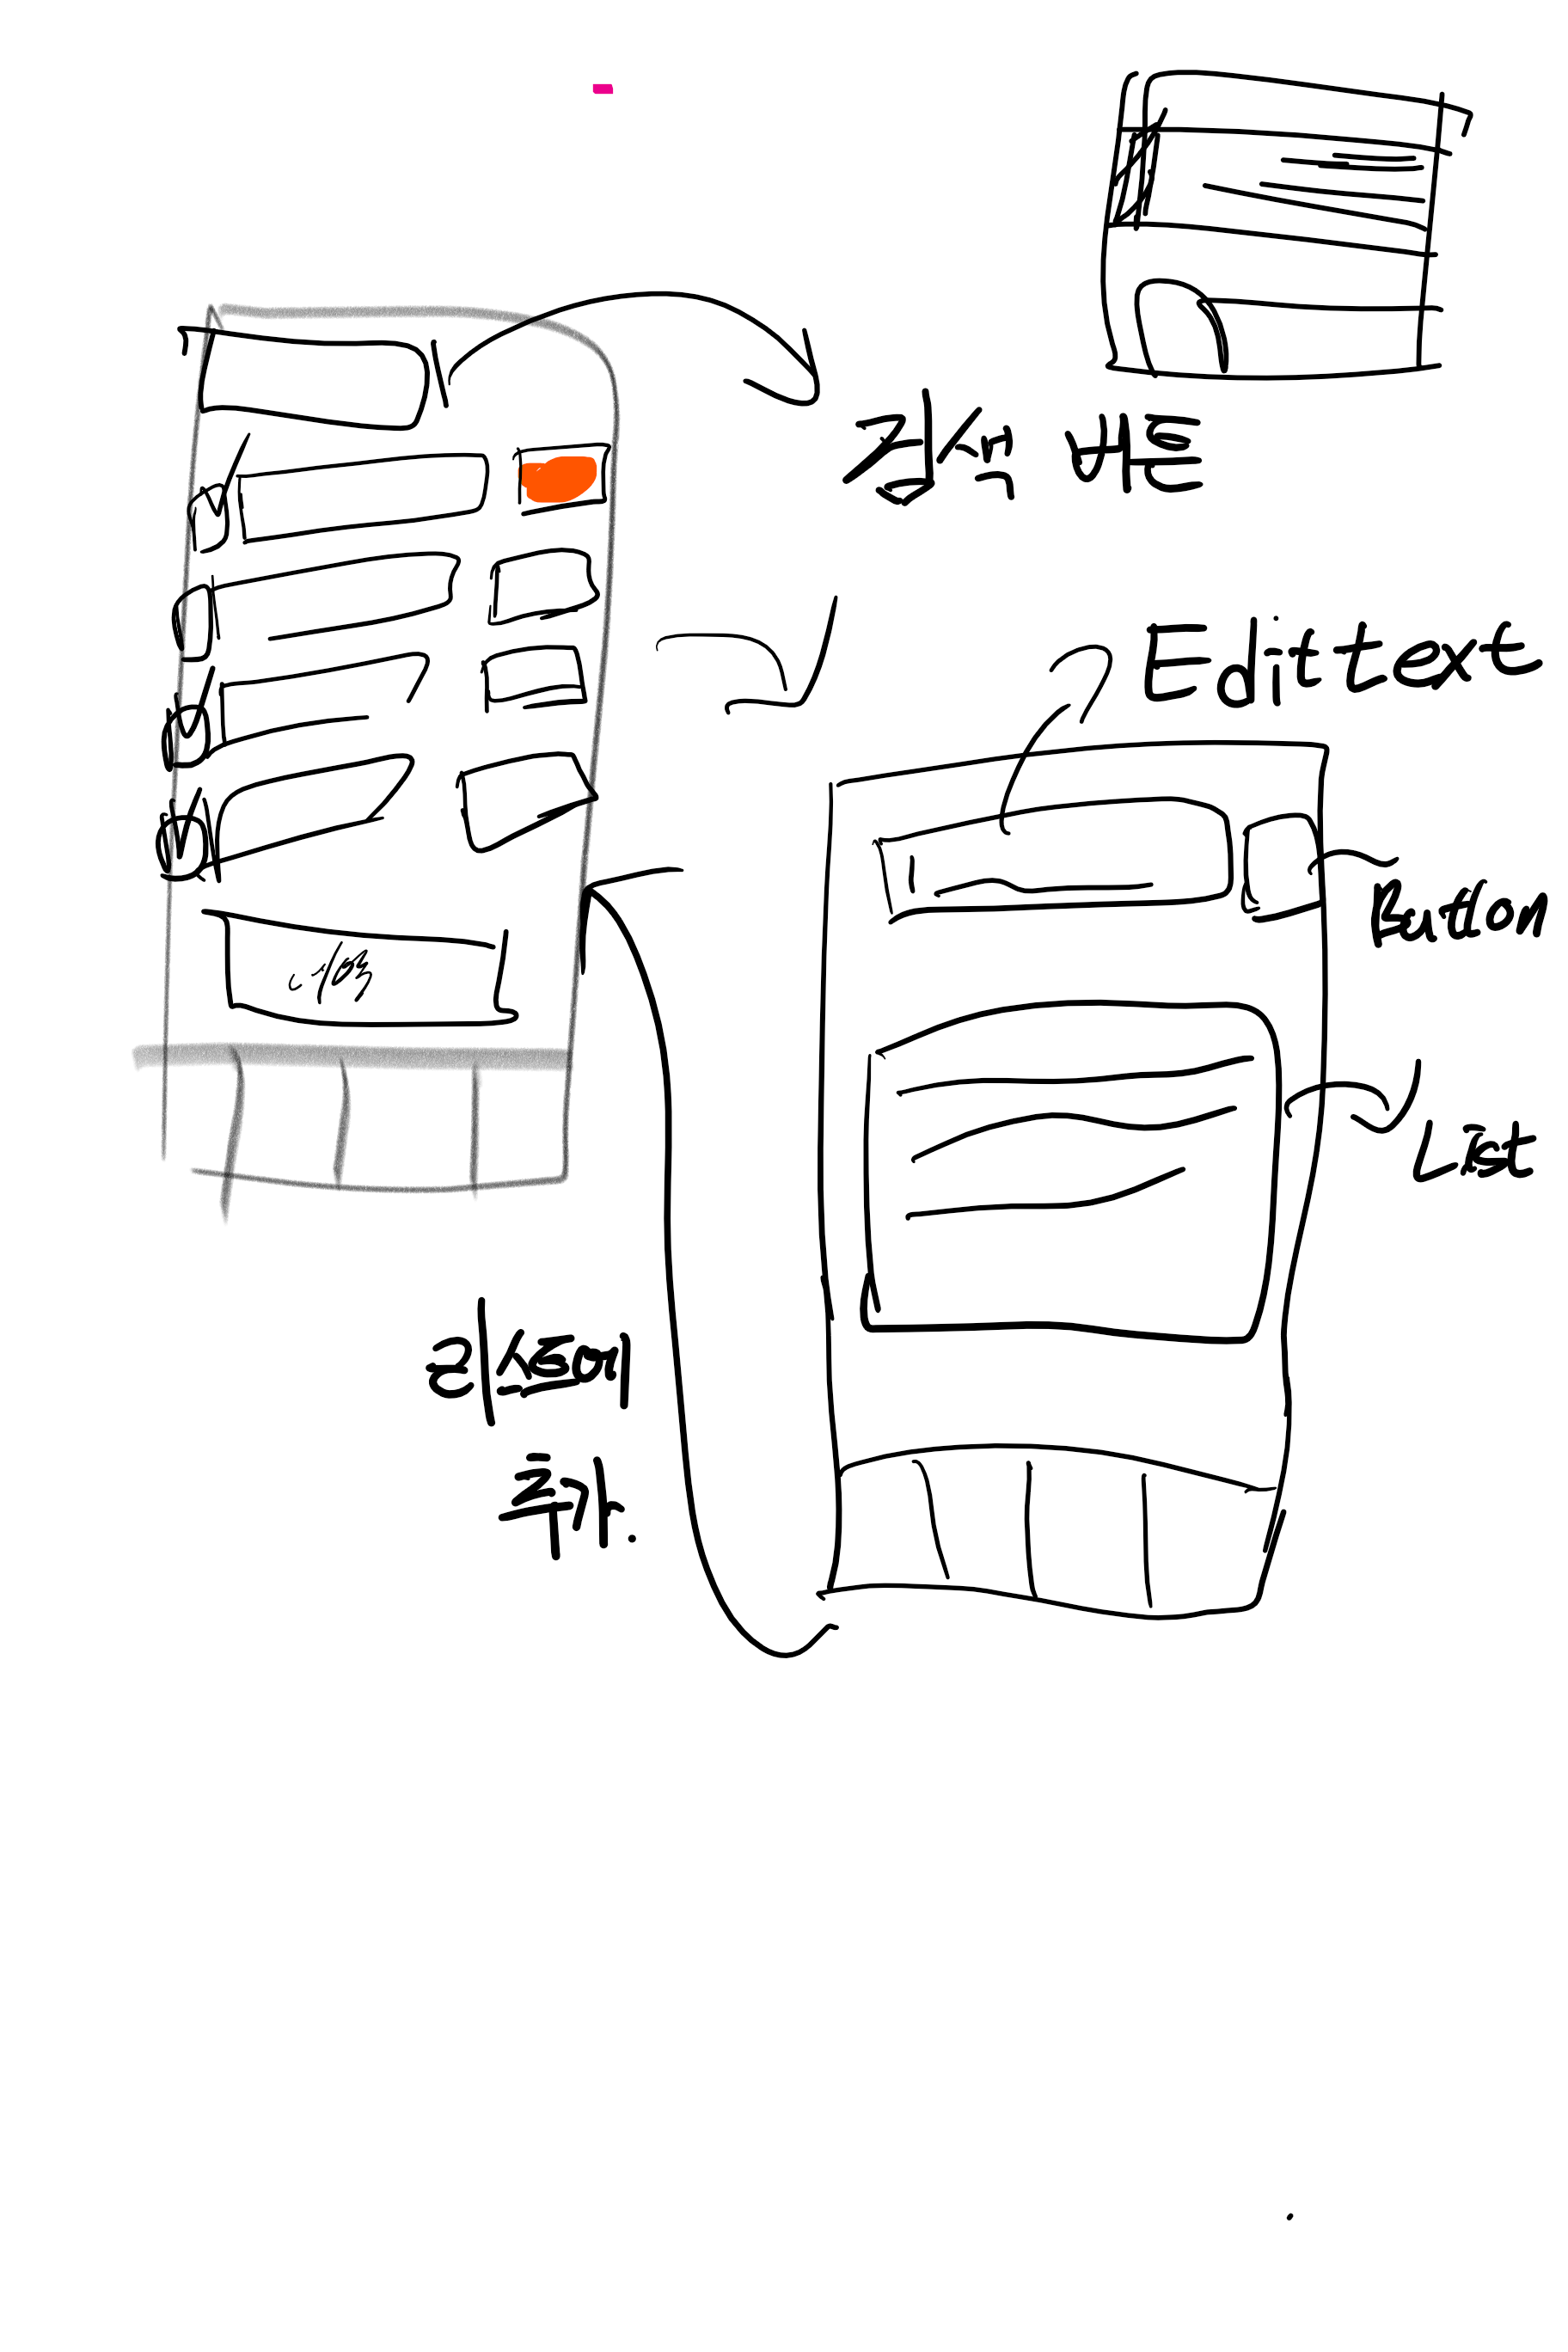 검색 버튼
Edit text
Button
List
리스트에
추가.